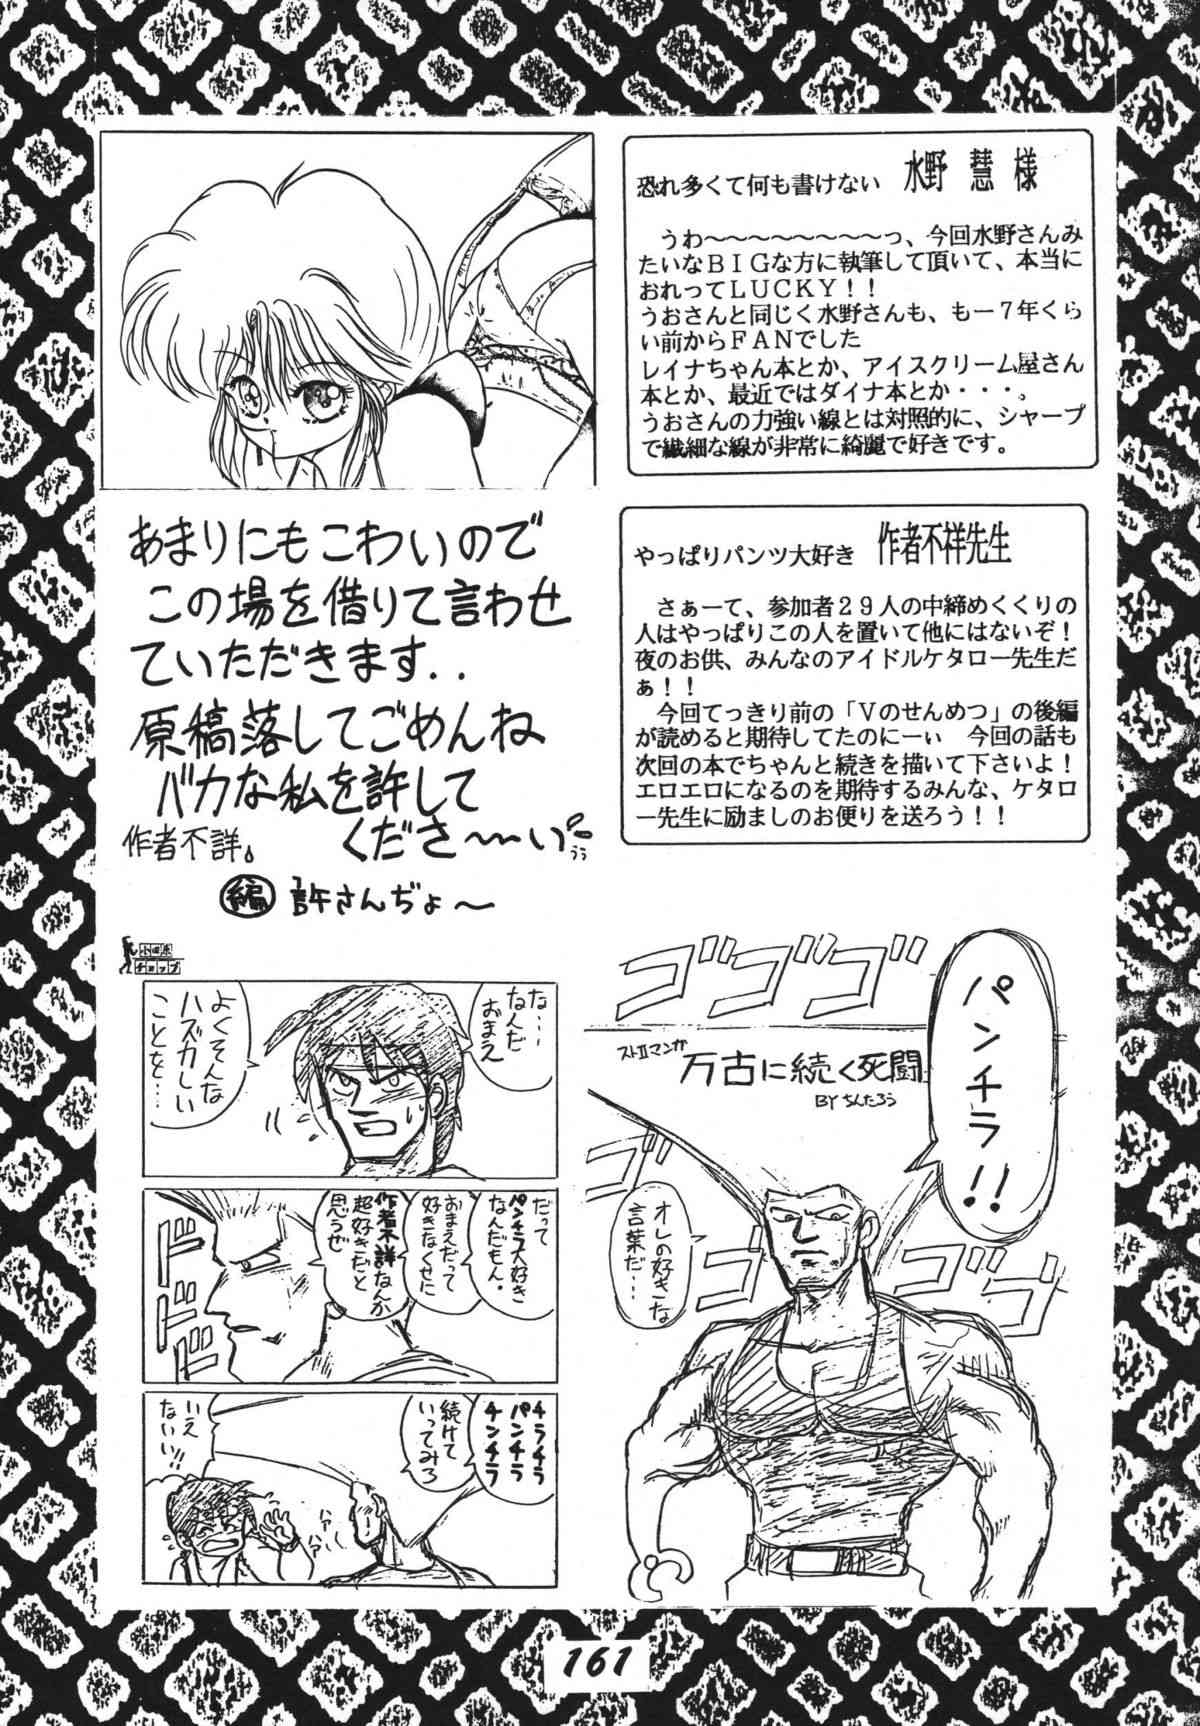 恐れ多くて何も書けない　水野　慧　様
うわ～～～～～～～～っ、今回水野さんみ
たいなＢＩＧな方に執筆して頂いて、本当に
おれってＬＵＣＫＹ！！
うおさんと同じく水野さんも、もー７年くら
い前からＦＡＮでした
レイナちゃん本とか、アイスクリーム屋さん
本とか、最近ではダイナ本とか・・・。
うおさんの力強い線とは対照的に、シャープ
で繊細な線が非常に綺麗で好きです。
あまりにもこわいので
この場を借りて言わせ
ていただきます..
原稿落してごめんね
バカな私を許して
くださ〜〜い
うぅ
作者不詳。
編 許さんぢょ〜
やっぱりパンツ大好き　作者不祥先生
さぁーて、参加者２９人の中締めくくりの
人はやっぱりこの人を置いて他にはないぞ！
夜のお供、みんなのアイドルケタロー先生だ
ぁ！！
今回てっきり前の「Ｖのせんめつ」の後編
が読めると期待してたのにーぃ　今回の話も
次回の本でちゃんと続きを描いて下さいよ！
エロエロになるのを期待するみんな、ケタロ
ー先生に励ましのお便りを送ろう！！
ゴゴゴゴ
パンチラ!!
ストIIマンガ
万古に続く死闘
BY ちんたろう
ゴゴ
オレの好きな
言葉だ…
ゴゴ
ゴゴ
チョップ
な…
なんだ
おまえ
よくそんな
ハズカしい
ことを…
だって
パンチラ大好き
なんだもん。
おまえだって
好きなくせに
作者不詳なんか
超好きだと
思うぜ
ドドドド
チラチラ
パンチラ
チンチラ
続けて
いってみろ
いえ
ないい!!
ハァ
ハァ
161